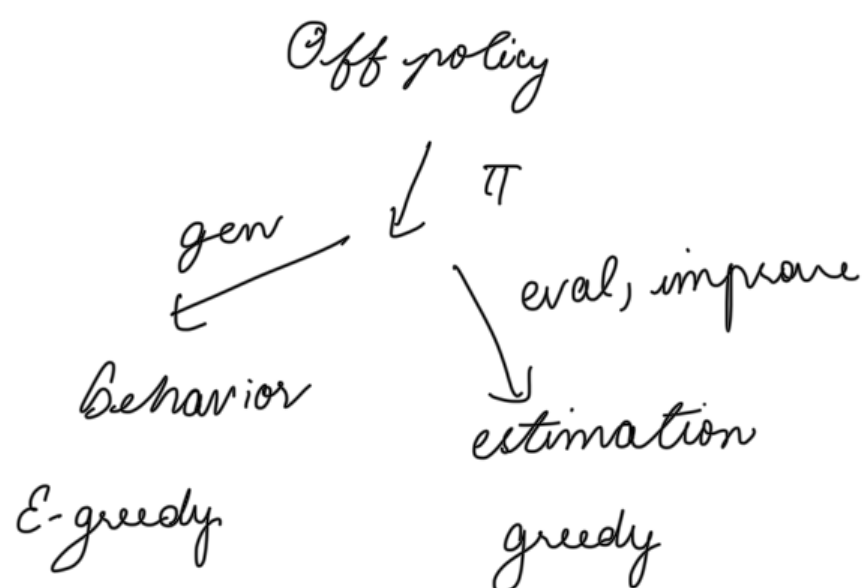 Off policy
π
gen
eval, improve
behavior
estimation
ε-greedy
greedy